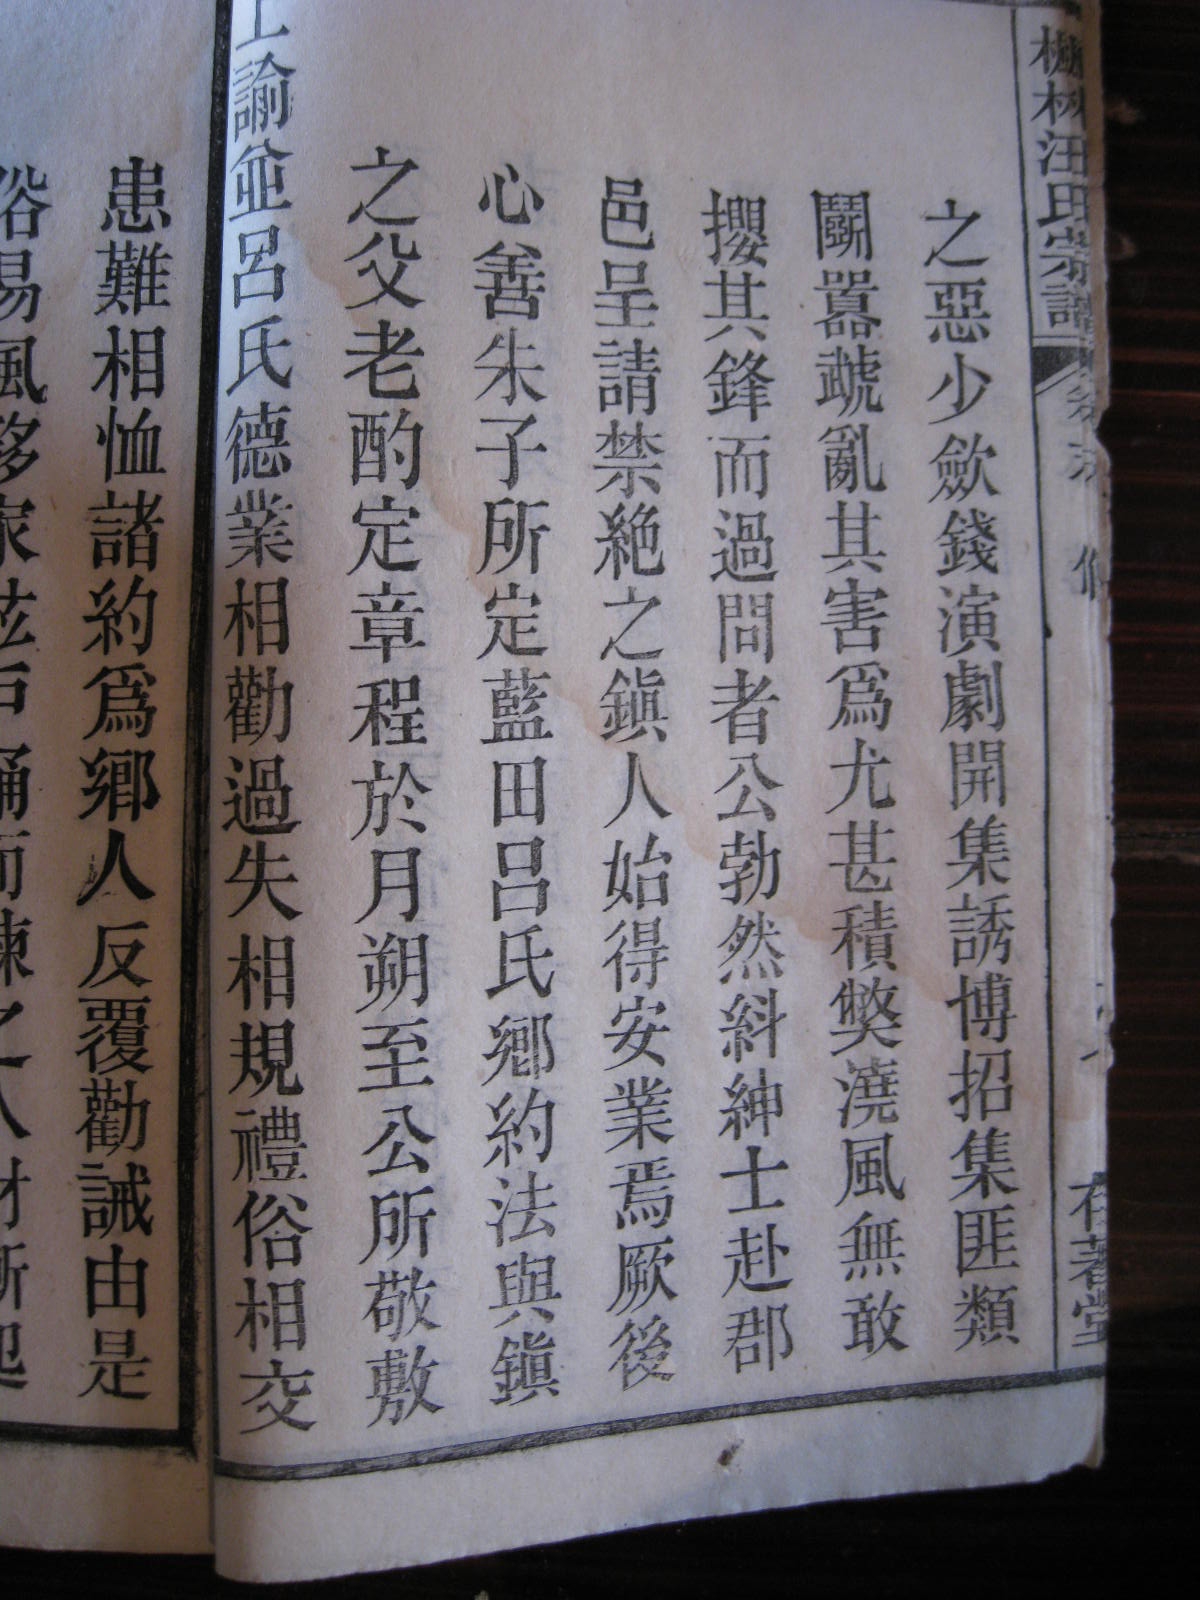 林汪氏宗譜
之惡少歛錢演劇開集誘博招集匪類
鬭囂虣亂其害爲尤甚積獘澆風無敢
攖其鋒而過問者公勃然糾紳士赴郡
邑呈請禁絕之鎭人始得安業焉厥後
心善朱子所定藍田呂氏鄉約法與鎭
之父老酌定章程於月朔至公所敬敷
上諭並呂氏德業相勸過失相規禮俗相交
患難相恤諸約爲鄉人反覆勸誡由是
俗易風移家